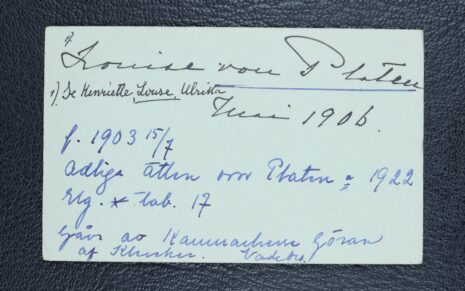 1) Louise von Platen
1) Se Henriette, Louise, Ulrika
Maj 1906.
f. 1903 15/7
Adliga ätten von Platen 1922
Elg. * tab. 17
Gåva av Kammarherre Göran
af Klercker. Vadsbro.